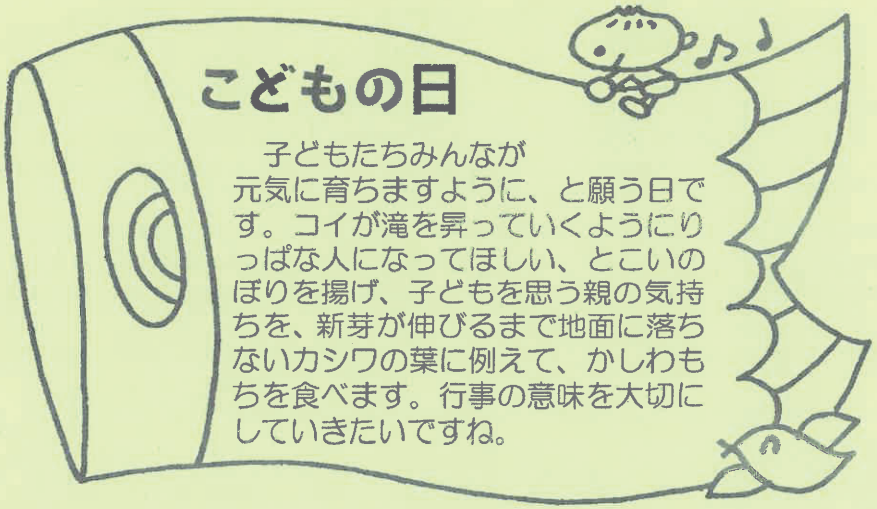 こどもの日
子どもたちみんなが
元気に育ちますように、と願う日で
す。コイが滝を昇っていくようにり
っぱな人になってほしい、とこいの
ぼりを揚げ、子どもを思う親の気持
ちを、新芽が伸びるまで地面に落ち
ないカシワの葉に例えて、かしわも
ちを食べます。行事の意味を大切に
していきたいですね。